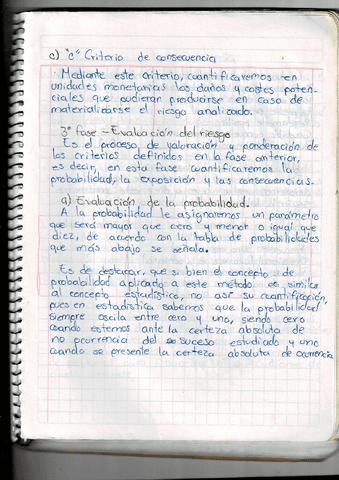 c) "C" Criterio de consecuencia
Mediante este criterio, cuantificaremos en
unidades monetarias los daños y costes poten-
ciales que pudieran producirse en caso de
materializarse el riesgo analizado.
3ª fase - Evaluación del riesgo
Es el proceso de valoración y ponderación de
los criterios definidos en la fase anterior,
es decir, en esta fase cuantificaremos la
probabilidad, la exposición y las consecuencias.
a) Evaluación de la probabilidad.
A la probabilidad le asignaremos un parámetro
que será mayor que cero y menor o igual que
diez, de acuerdo con la tabla de probabilidades
que más abajo se señala.
Es de destacar, que si bien el concepto de
probabilidad aplicado a este método es similar
al concepto estadístico, no así su cuantificación,
pues en estadística sabemos que la probabilidad
siempre oscila entre cero y uno, siendo cero
cuando estemos ante la certeza absoluta de
no ocurrencia del suceso estudiado y uno
cuando se presente la certeza absoluta de ocurrencia